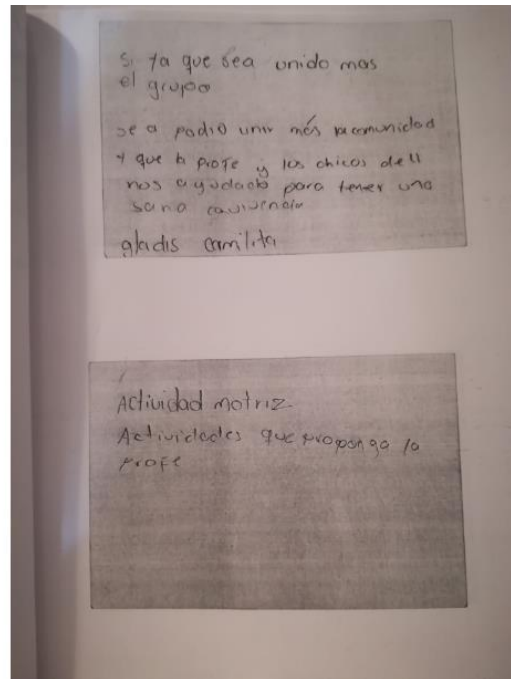 si ya que sea unido mas
el grupo
se a podio unir más la comunidad
y que la profe y los chicos dell
nos ayudado para tener una
sana
gladis camilita
Actividad motriz
Actividades que proponga la
profe